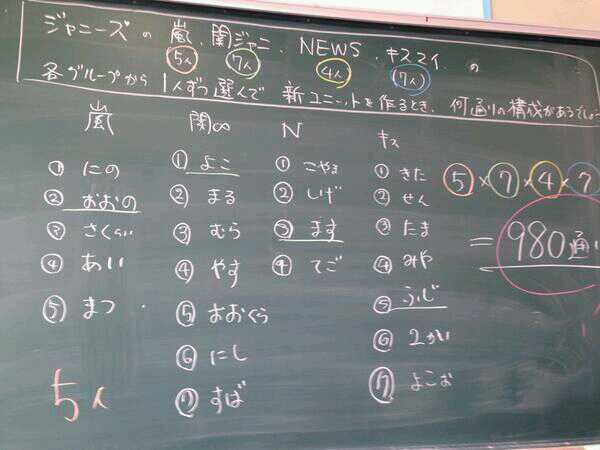 ジャニーズの 嵐、関ジャニ、NEWS、キスマイ、の
5人 7人 4人 7人
各グループから 1人ずつ選んで 新ユニットを作るとき、何通りの構成があるでしょ
嵐 関∞ N キス
① にの ① よこ ① こやま ① きた
② おおの ② まる ② しげ ② せん
③ さくらい ③ むら ③ ます ③ たま
④ あい ④ やす ④ てご ④ みや
⑤ まつ ⑤ おおくら ⑤ ふじ
⑥ にし ⑥ 2かい
⑦ すば ⑦ よこお
5人
5×7×4×7
= 980通り